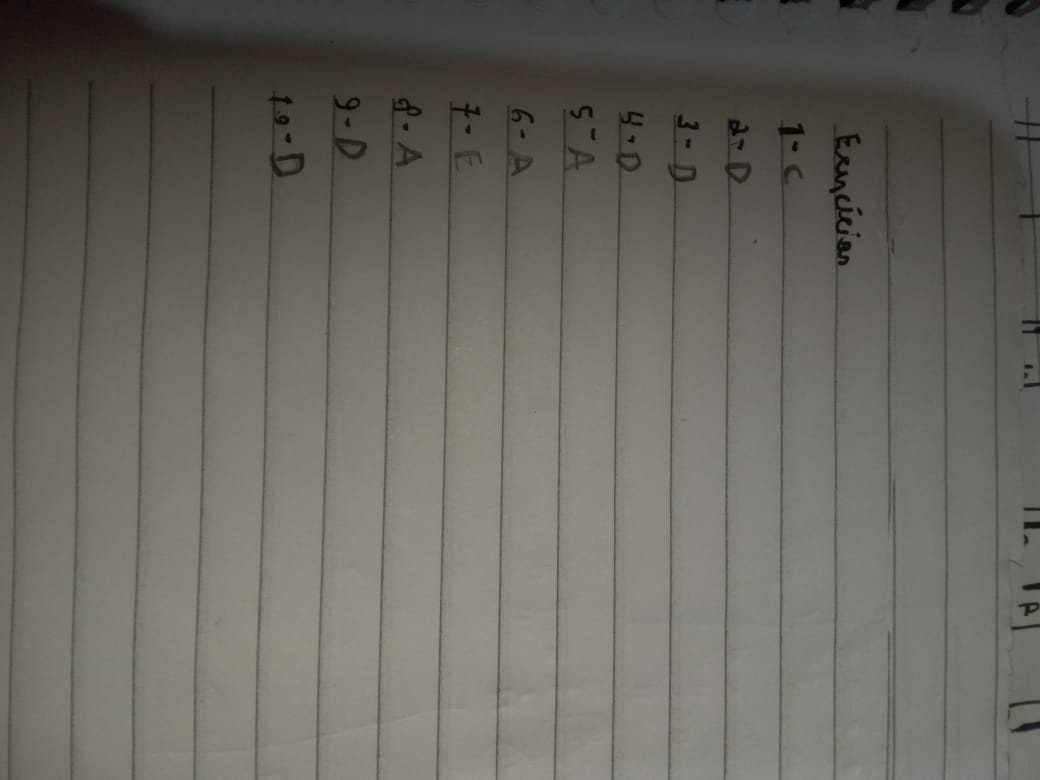 Exercícios
1- C
2- D
3- D
4- D
5- A
6- A
7- E
8- A
9- D
10- D